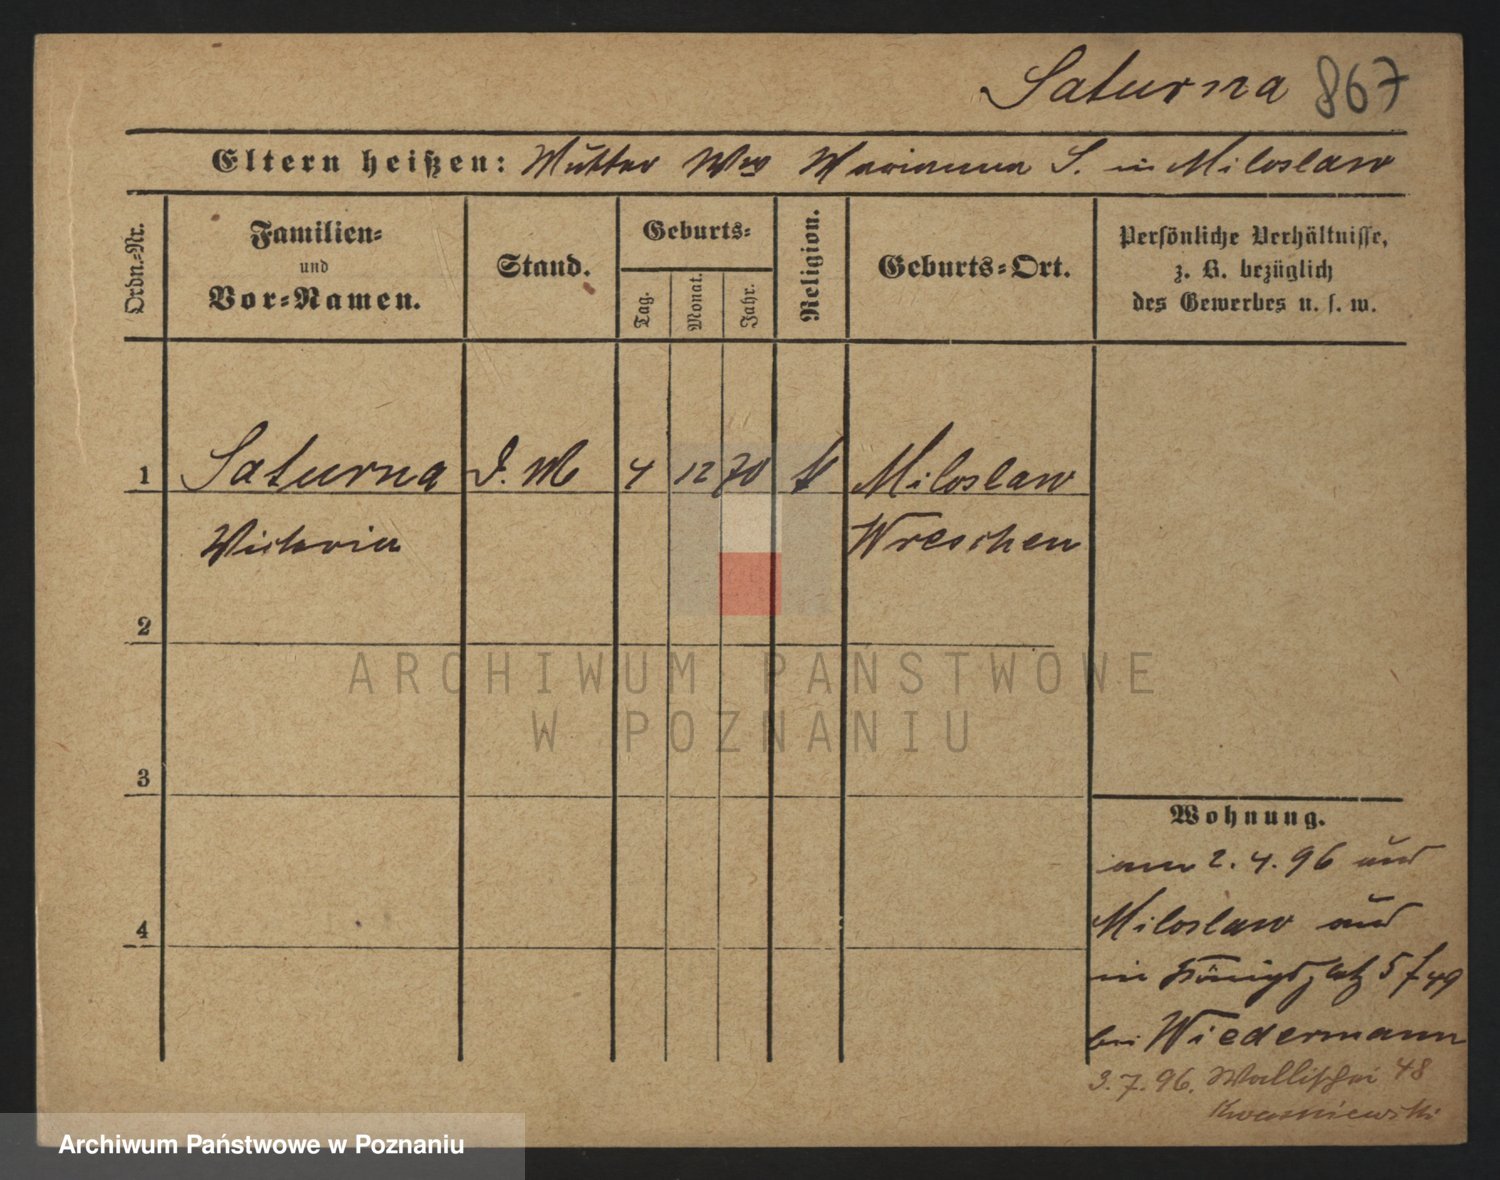 Saturna 867
Eltern heißen: Mutter Marianna S. in Miloslaw
Ordn.-Nr.
Familien-
und
Vor-Namen.
Stand.
Geburts-
Tag.
Monat.
Jahr.
Religion.
Geburts-Ort.
Persönliche Verhältnisse,
z. B. bezüglich
des Gewerbes u. s. w.
1 Saturna D. M 4 12 70 k Miloslaw
Victoria Wreschen
2
3
4
Wohnung.
am 2. 4. 96 aus
Miloslaw und
in Königsplatz 5
bei Wiedermann
3. 7. 96. Wallischei 48
Kwasniewski
ARCHIWUM PAŃSTWOWE
W POZNANIU
Archiwum Państwowe w Poznaniu